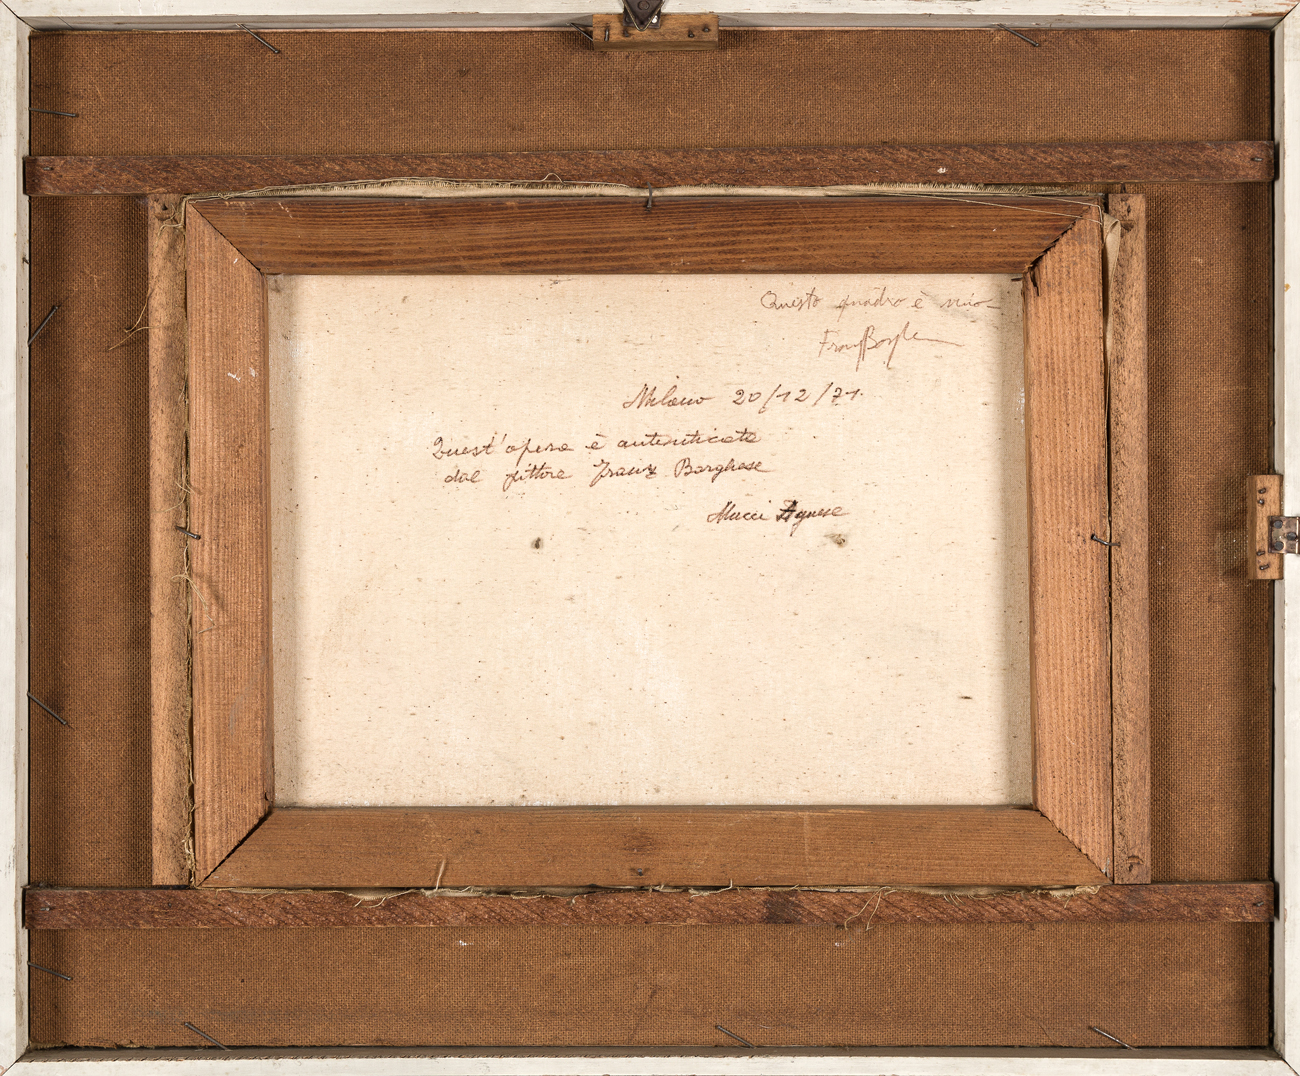 Questo quadro è mio
Franz Borghe
Milano 20/12/71.
Quest'opera è autenticata
dal pittore Franz Borghese
Mucci Agnese